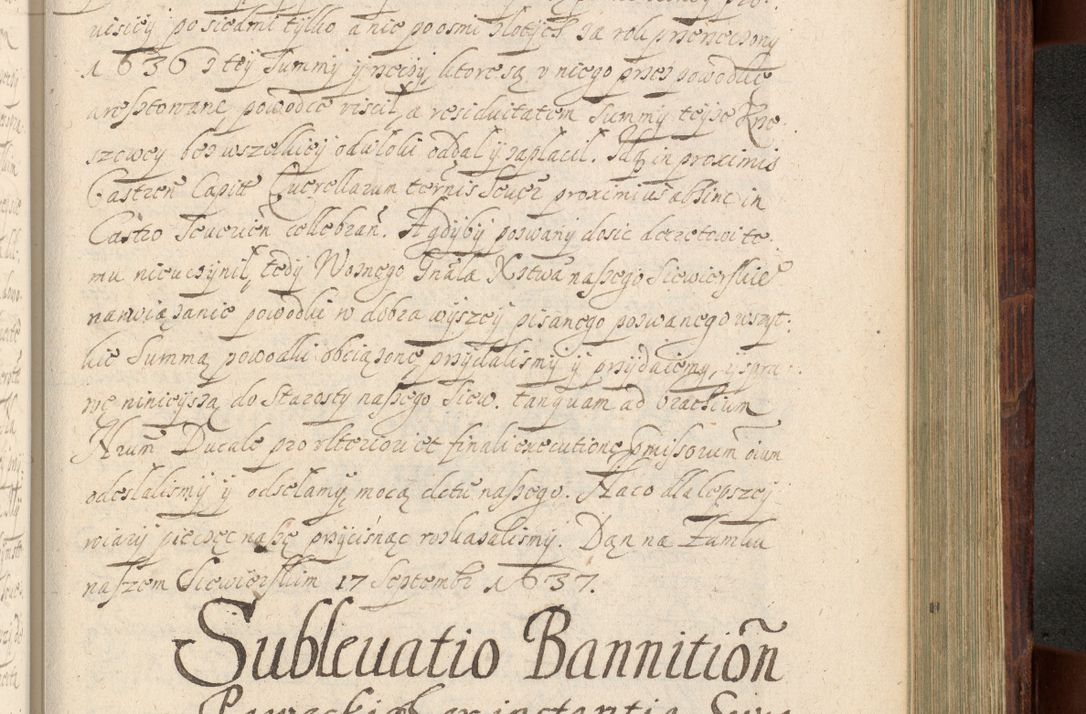 uisiey po siedmi tylko, a nie po osmi złotych za rok przerzeczony
1636 z tey Summy y rzeczy, ktore są v niego przez powodkę
aresztowane powodce viscił, a residuitatem Summy teyże Krze
szowey bez wszelkiey odwłoki oddał y zapłacił. Juz in proximis
Castren Capitt Querellarum ternis Seuer proximius absinc in
Castro Seuerien cellebran. A gdyby pozwany dosic decretowi te
mu nieuczynił, tedy Woznego Gnâla Xstwa naszego Siewierskie
nawiązanie powodki w dobra wyszey pisanego pozwanego wszyt:
kie Summą powodki obciązone przydalismy y przyduiemy, y spra
wę ninieyszą do Starosty naszego Siew. tanquam ad brachium
Nrum Ducale pro vlteriori et finali executione pmissorum oium
odeslalismy y odsełamy mocą detu naszego. Na co dla lepszey
wiary pieczęć naszę przycisnąc roskazalismy. Dan na Zamku
naszem Siewierskim 17 Septembr 1637.
Subleuatio Bannition
ex instantia